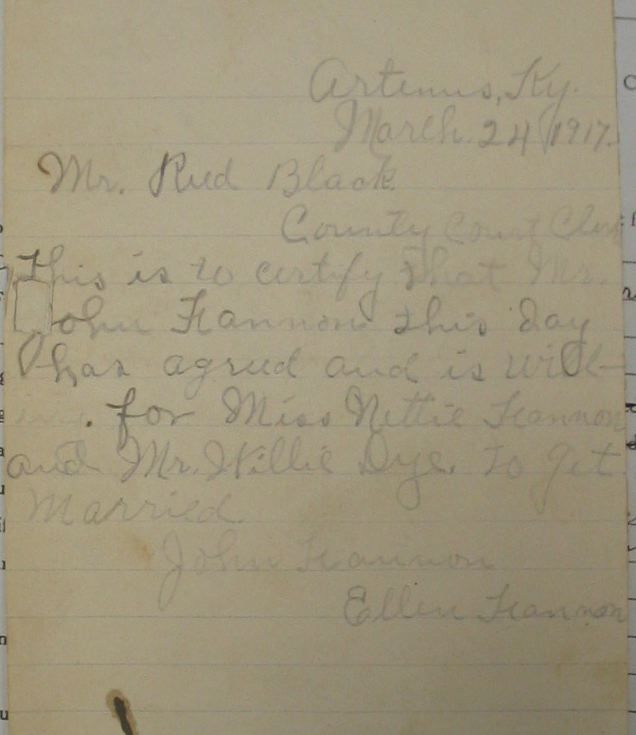 Artemus, Ky.
March. 24 1917.
Mr. Rud Black
County Court Clerk
This is to certify that Mr.
John Hannon this day
has agreed and is will-
ing. for Miss Nettie Hannon
and Mr. Willie Dye. to get
Married.
John Hannon
Ellen Hannon